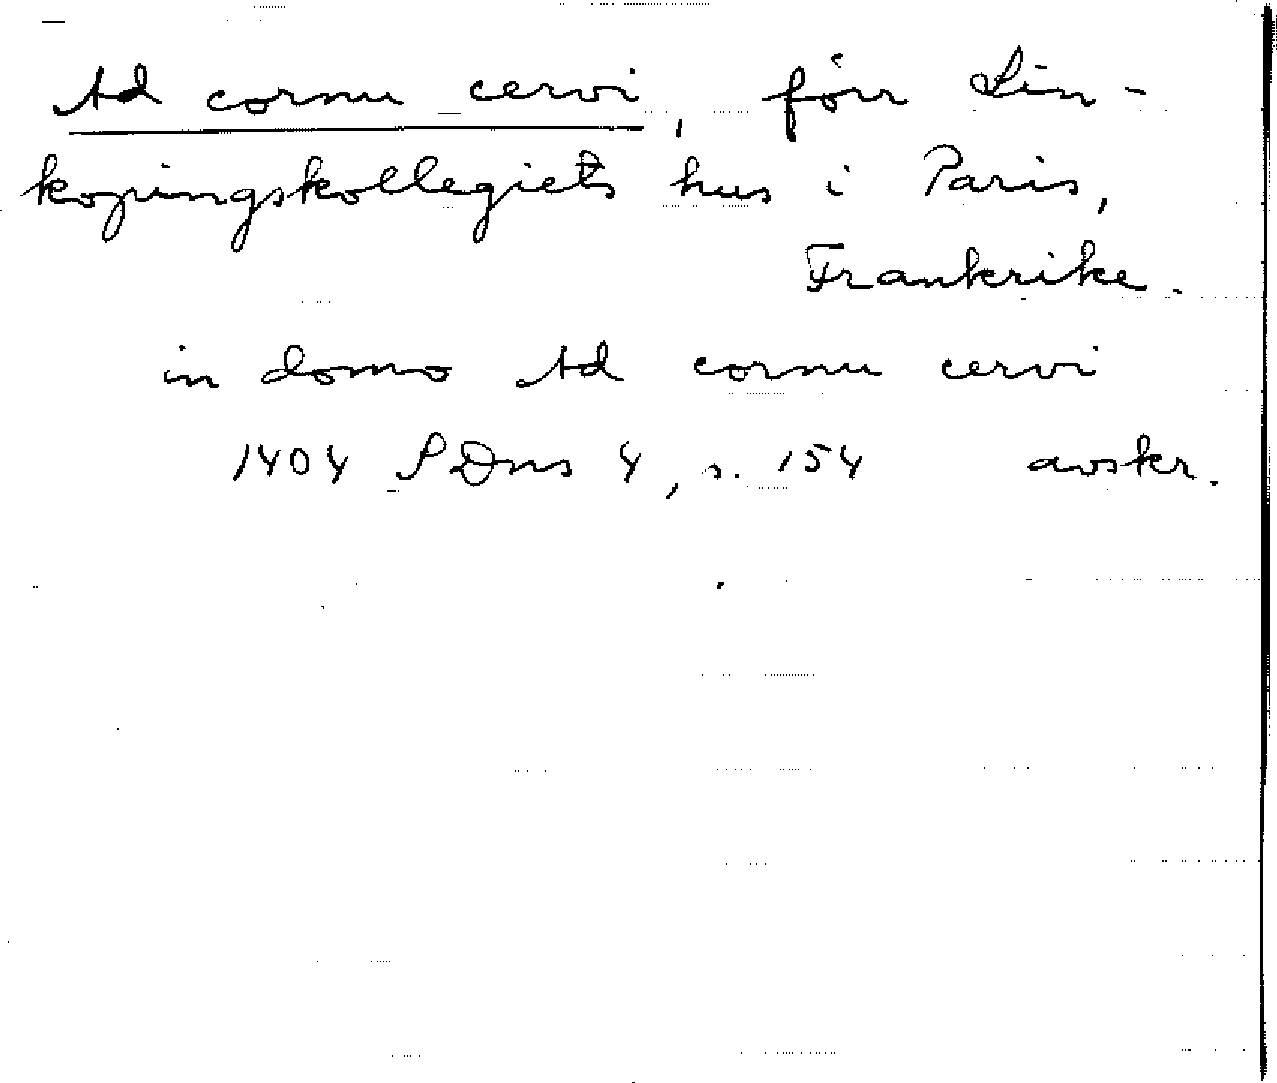 Ad cornu cervi, förr Lin-
kopingskollegiets hus i Paris,
Frankrike.
in domo Ad cornu cervi
1404 SDns 4, s. 154 avskr.